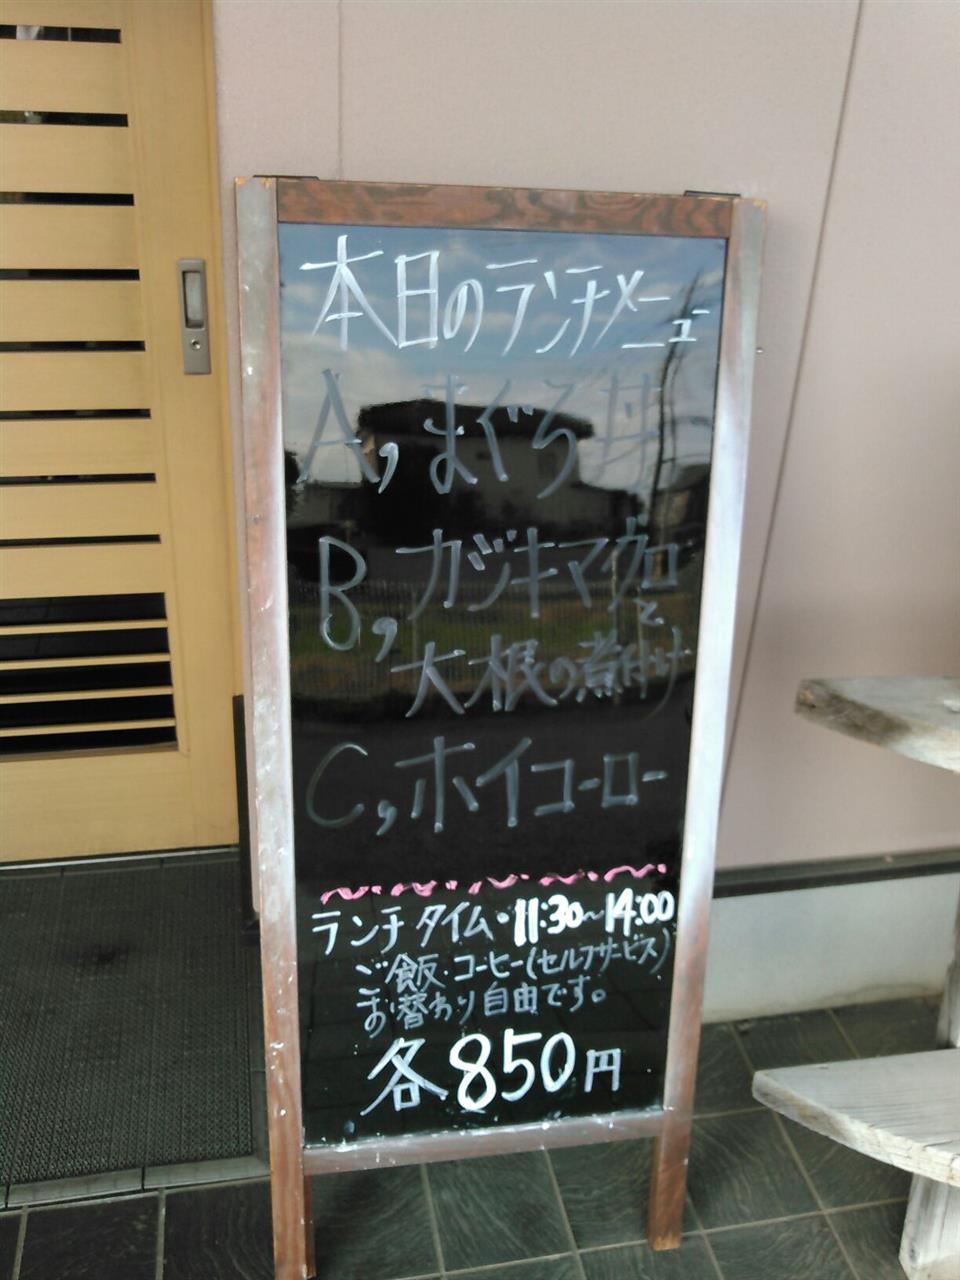 本日のランチメニュー
A, まぐろ丼
B, カジキマグロと
大根の煮付け
C, ホイコーロー
ランチタイム・11:30~14:00
ご飯・コーヒー(セルフサービス)
お替わり自由です。
各850円